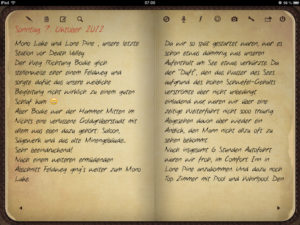 07:00
Sonntag 7. Oktober 2012
Mono Lake und Lone Pine , unsere letzte
Station vor Death Valley
Den Weg Richtung Bodie glich
stellenweise einer einem Feldweg und
sorgte dafür das unsere weibliche
Begleitung nicht wirklich zu einem guten
Schlaf kam
Aber Bodie war der Hammer Mitten im
Nichts eine verlassene Goldgräberstadt mit
allem was eben dazu gehört. Saloon,
Sägewerk und das alte Minengebäude.
Sehr beeindruckend!
Nach einem weiteren ermüdenden
Abschnitt Feldweg ging's weiter zum Mono
Lake.
Da wir so spät gestartet waren, war es
schon etwas dämmrig was unseren
Aufenthalt am See etwas verkürzte. Da
der "Duft", den das Wasser des Sees
aufgrund des hohen Schwefel-Gehalts
verströmte aber nicht unbedingt
einladend war waren wir über eine
zeitige Weiterfahrt nicht sooo traurig.
Abgesehen davon aber wieder ein
Anblick, den Mann nicht allzu oft zu
sehen bekommt.
Nach insgesamt 6 Stunden Autofahrt
waren wir froh, im Comfort Inn in
Lone Pine anzukommen. Und dazu noch
Top Zimmer mit Pool und Whirlpool. Den